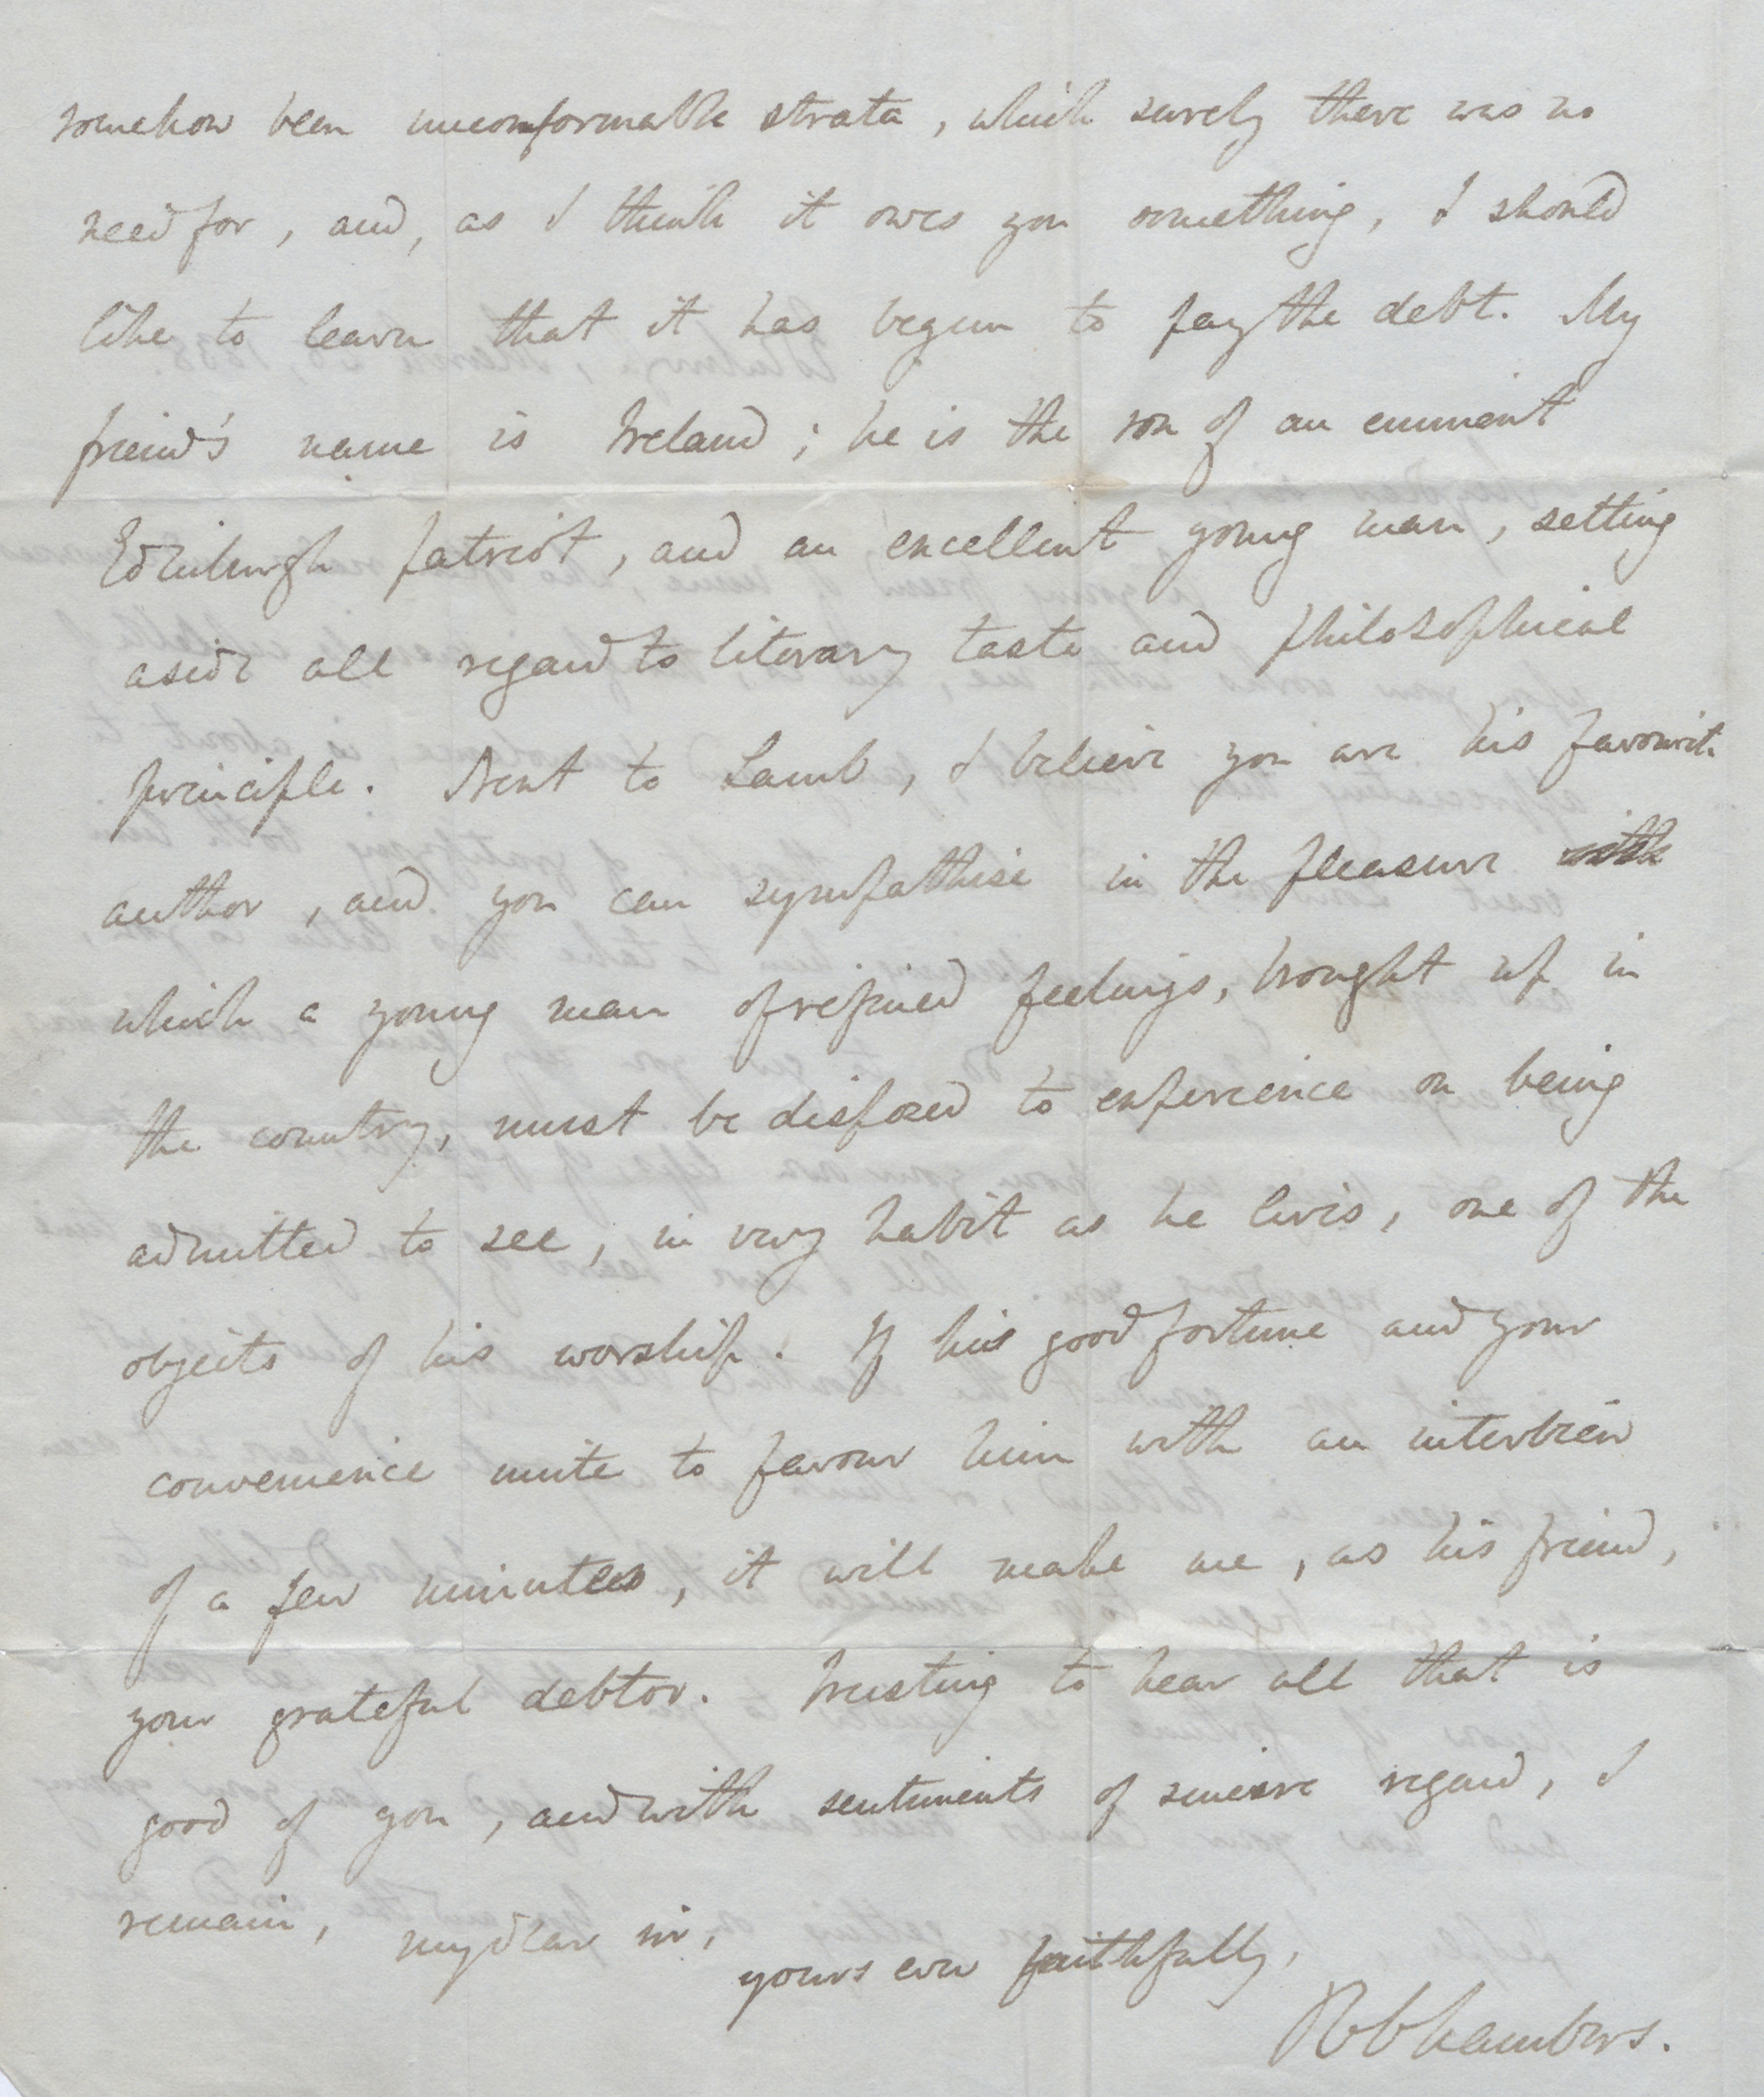 somehow been unconformable strata, which surely there was no
need for, and, as I think it owes you something, I should
like to learn that it has begun to pay the debt. My
friend's name is Ireland; he is the son of an eminent
Edinburgh patriot, and an excellent young man, setting
aside all regard to literary taste and philosophical
principle. Next to Lamb, I believe you are his favourite
author, and you can sympathise in the pleasure with
which a young man of refined feelings, brought up in
the country, must be disposed to experience on being
admitted to see, in very habit as he lives, one of the
objects of his worship. If his good fortune and your
convenience unite to favour him with an interview
of a few minutes, it will make me, as his friend,
your grateful debtor. Trusting to hear all that is
good of you, and with sentiments of sincere regard, I
remain, my dear sir,
yours ever faithfully,
R Chambers.